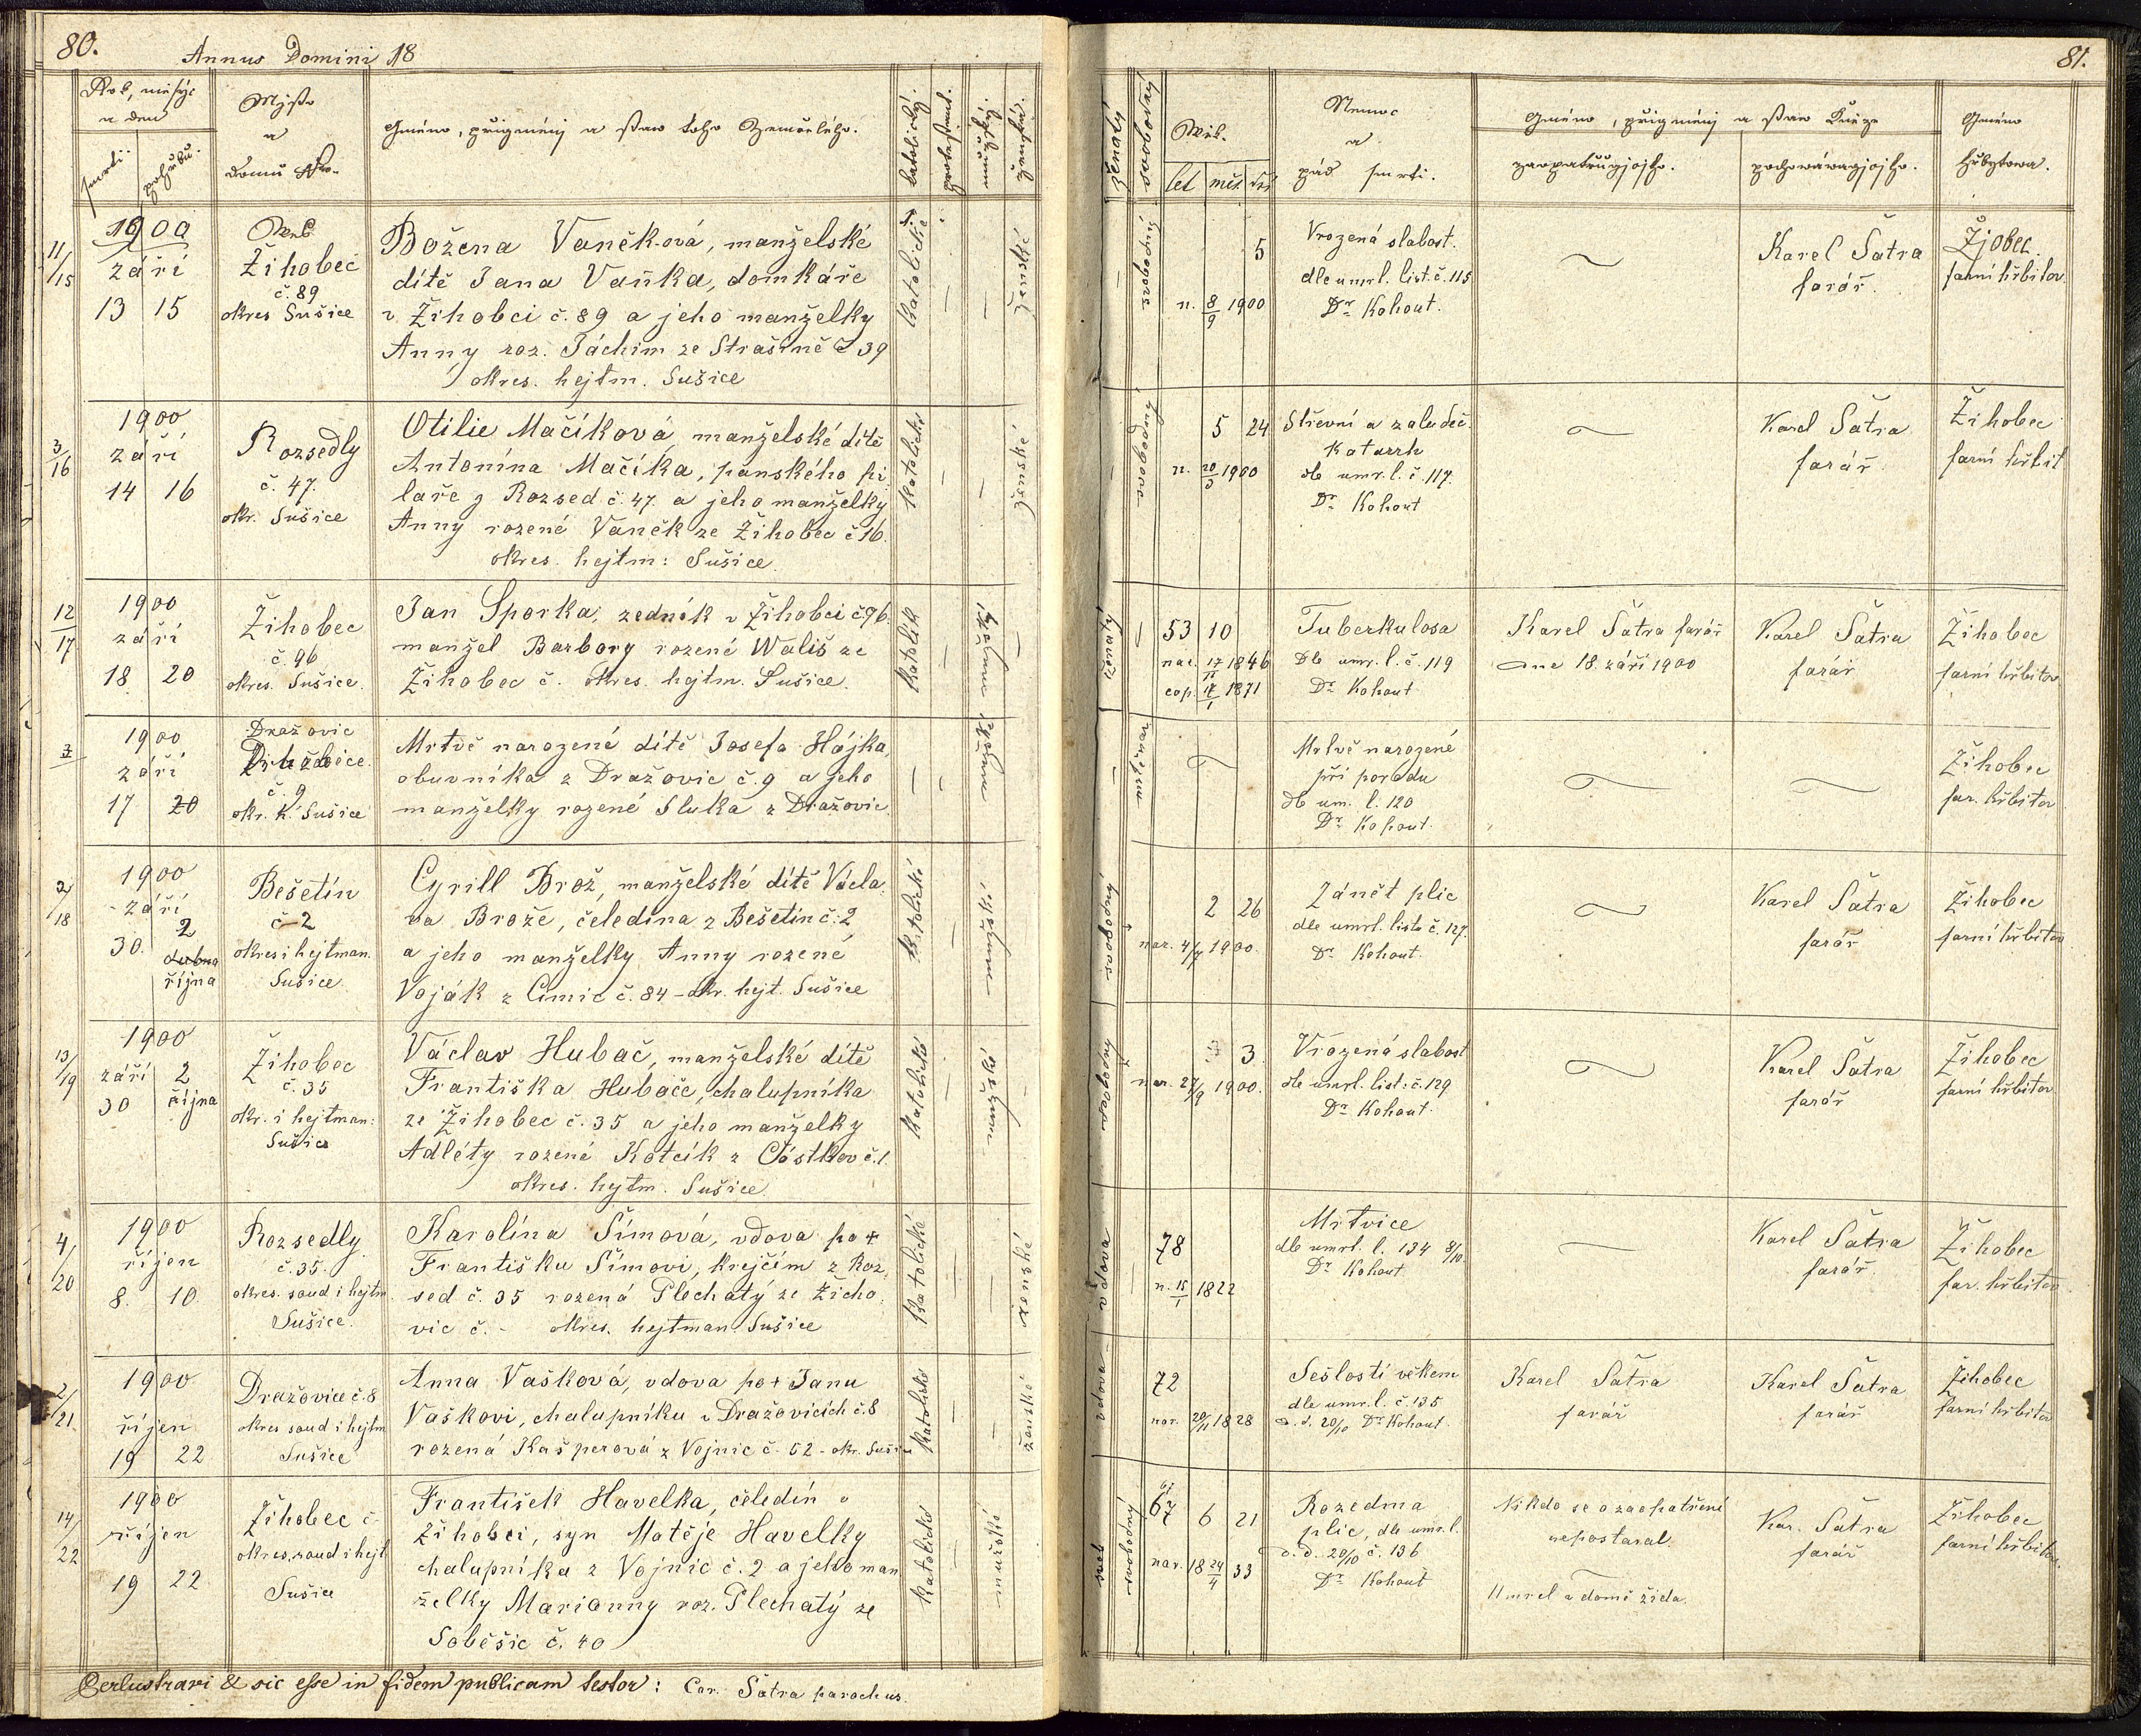 80.
Annus Domini 18
Rok, měsýc
a den
smrti.
pohřbu.
Mjsto
a
Domu Nro.
Gméno, přigménj a staw toho Zemřelého.
katolický.
protestant.
mužský.
ženský.
1900
11/15
září
13 15
Žihobec
č. 89
okres Sušice
Božena Vaňková, manželské
dítě Jana Vaňka, domkáře
v Žihobci č. 89 a jeho manželky
Anny roz. Jáchim ze Strašíně č 39
okres. hejtm. Sušice
katolické
ženské
1900
3/16
září
14 16
Rozsedly
č. 47.
okr. Sušice
Otilie Mačíková manželské dítě
Antonína Mačíka, pánského pi
laře z Rozsed č. 47. a jeho manželky
Anny rozené Vaněk ze Žihobec č 16.
okres. hejtm: Sušice.
katolické
ženské
1900
12/17
září
18 20
Žihobec
č. 96
okres. Sušice.
Jan Sporka, zedník v Žihobci č. 96.
manžel Barbory rozené Wališ ze
Žihobec č. okres. hejtm. Sušice.
katolík
1900
září
17 20
Dražovic
č. 9
okr. h. Sušice
Mrtvě narozené dítě Josefa Hájka,
obuvníka z Dražovic č. 9 a jeho
manželky rozené Sluka z Dražovic.
1900
2/18
září
30. 2
dubna
října
Bešetín
č 2
okres i hejtman.
Sušice
Cyrill Brož, manželské dítě Václa
va Brože, čeledína z Bešetín č: 2
a jeho manželky Anny rozené
Voják z Čimic č. 84 - okr. hejt. Sušice
katolické
1900
13/19
září 2
30 října
Žihobec
č. 35
okr. i hejtman:
Sušice
Václav Hubač, manželské dítě
Františka Hubače, chalupníka
ze Žihobec č. 35 a jeho manželky
Adléty rozené Kotčík z Částkov č. 1.
okres. hejtm. Sušice.
katolické
1900
4/20
říjen
8. 10
Rozsedly
č. 35.
okres. soud i hejtm.
Sušice.
Karolína Šímová, vdova po +
Františku Šímovi, krejčím z Roz
sed č. 35 rozená Plechatý ze Žicho
vic č. - okres. hejtman. Sušice
katolické
ženské
1900
2/21
říjen
19 22
Dražovice č. 8
okres soud i hejtm
Sušice
Anna Vašková, vdova po + Janu
Vaškovi, chalupníku v Dražovicích č. 8
rozená Kašperová z Vojnic č. 52 - okr. Sušice
katolické
ženské
1900
14/22
říjen
19 22
Žihobec č.
okres. soud i hejt
Sušice
František Havelka, čeledín v
Žihobci, syn Matěje Havelky
chalupníka z Vojnic č. 2 a jeho man
želky Marianny roz. Plechatý ze
Soběšic č. 40
katolické
mužské
Perlustravi & sic esse in fidem publicam testor: Car. Šatra parochus.
81.
ženatý
swobodný
Wěk.
let měs. dní
Nemoc
a
pád smrti.
Gméno, přigménj a staw Kněze
zaopatrugjcjho.
pochowáwagjcjho.
Gméno
hřbytowa.
svobodný
5
n. 8/9 1900
Vrozená slabost.
dle umrl. list. č. 115
Dr Kohout.
Karel Šatra
farář.
farní hřbitov
svobodný
5 24
n. 20/3 1900
Střevní a žaludeč.
Katarrh
dle umr. l. č. 117.
Dr Kohout
Karel Šatra
farář.
Žihobec
farní hřbit
ženatý
53 10
nar. 17/11 1846
cop. 1871
Tuberkulosa
Dle umr. l. č. 119
Dr Kohout
Karel Šatra farář
dne 18. září 1900
Karel Šatra
farář
Žihobec
farní hřbitov
Mrtvě narozené
při porodu
dle um. l. 120
Dr Kohout.
Žihobec
far. hřbitov
svobodný
2 26
nar. 4/7 1900.
Zánět plic
dle umrl. listu č. 127.
Dr Kohout.
Karel Šatra
farář
Žihobec
farní hřbitov
svobodný
3
nar. 27/9 1900.
Vrozená slabost
dle umrl. list. č. 129
Dr Kohout.
Karel Šatra
farář
Žihobec
farní hřbitov
vdova
78
n. 15/1 1822
Mrtvice
dle umrl. l. 134 8/10
Dr Kohout
Karel Šatra
farář.
Žihobec
far. hřbitov
vdova
72
nar. 20/11 1828
Sešlostí věkem
dle umr. l. č. 135
d. d. 20/10 Dr Kohout.
Karel Šatra
farář
Karel Šatra
farář
Žihobec
farní hřbitov
svobodný
67 6 21
nar. 18 24/4 33
Rozedma
plic, dle umr. l.
d. d. 20/10 č. 136
Dr Kohout
Nikdo se o zaopatření
nepostaral.
Umrel v domě žida.
Kar. Šatra
farář
Žihobec
farní hřbitov.